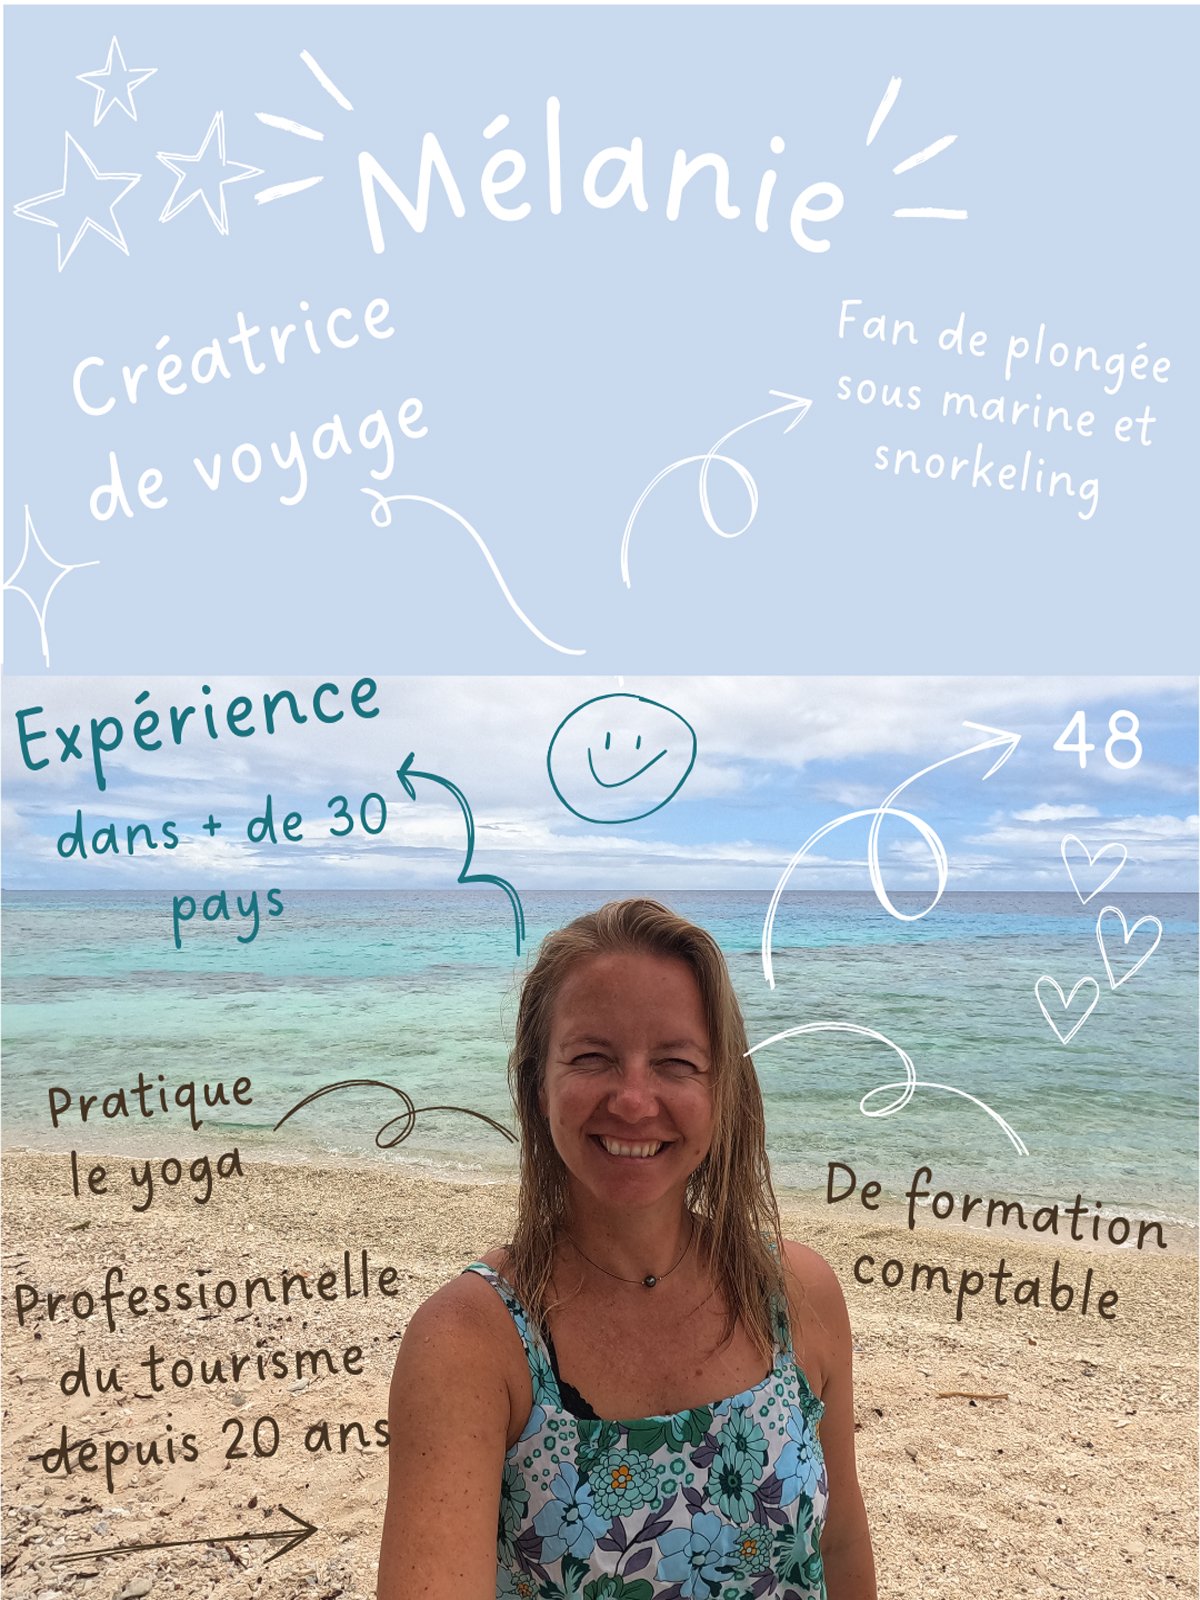 Mélanie
Créatrice
de voyage
Fan de plongée
sous marine et
snorkeling
Expérience
dans + de 30
pays
48
Pratique
le yoga
De formation
comptable
Professionnelle
du tourisme
depuis 20 ans